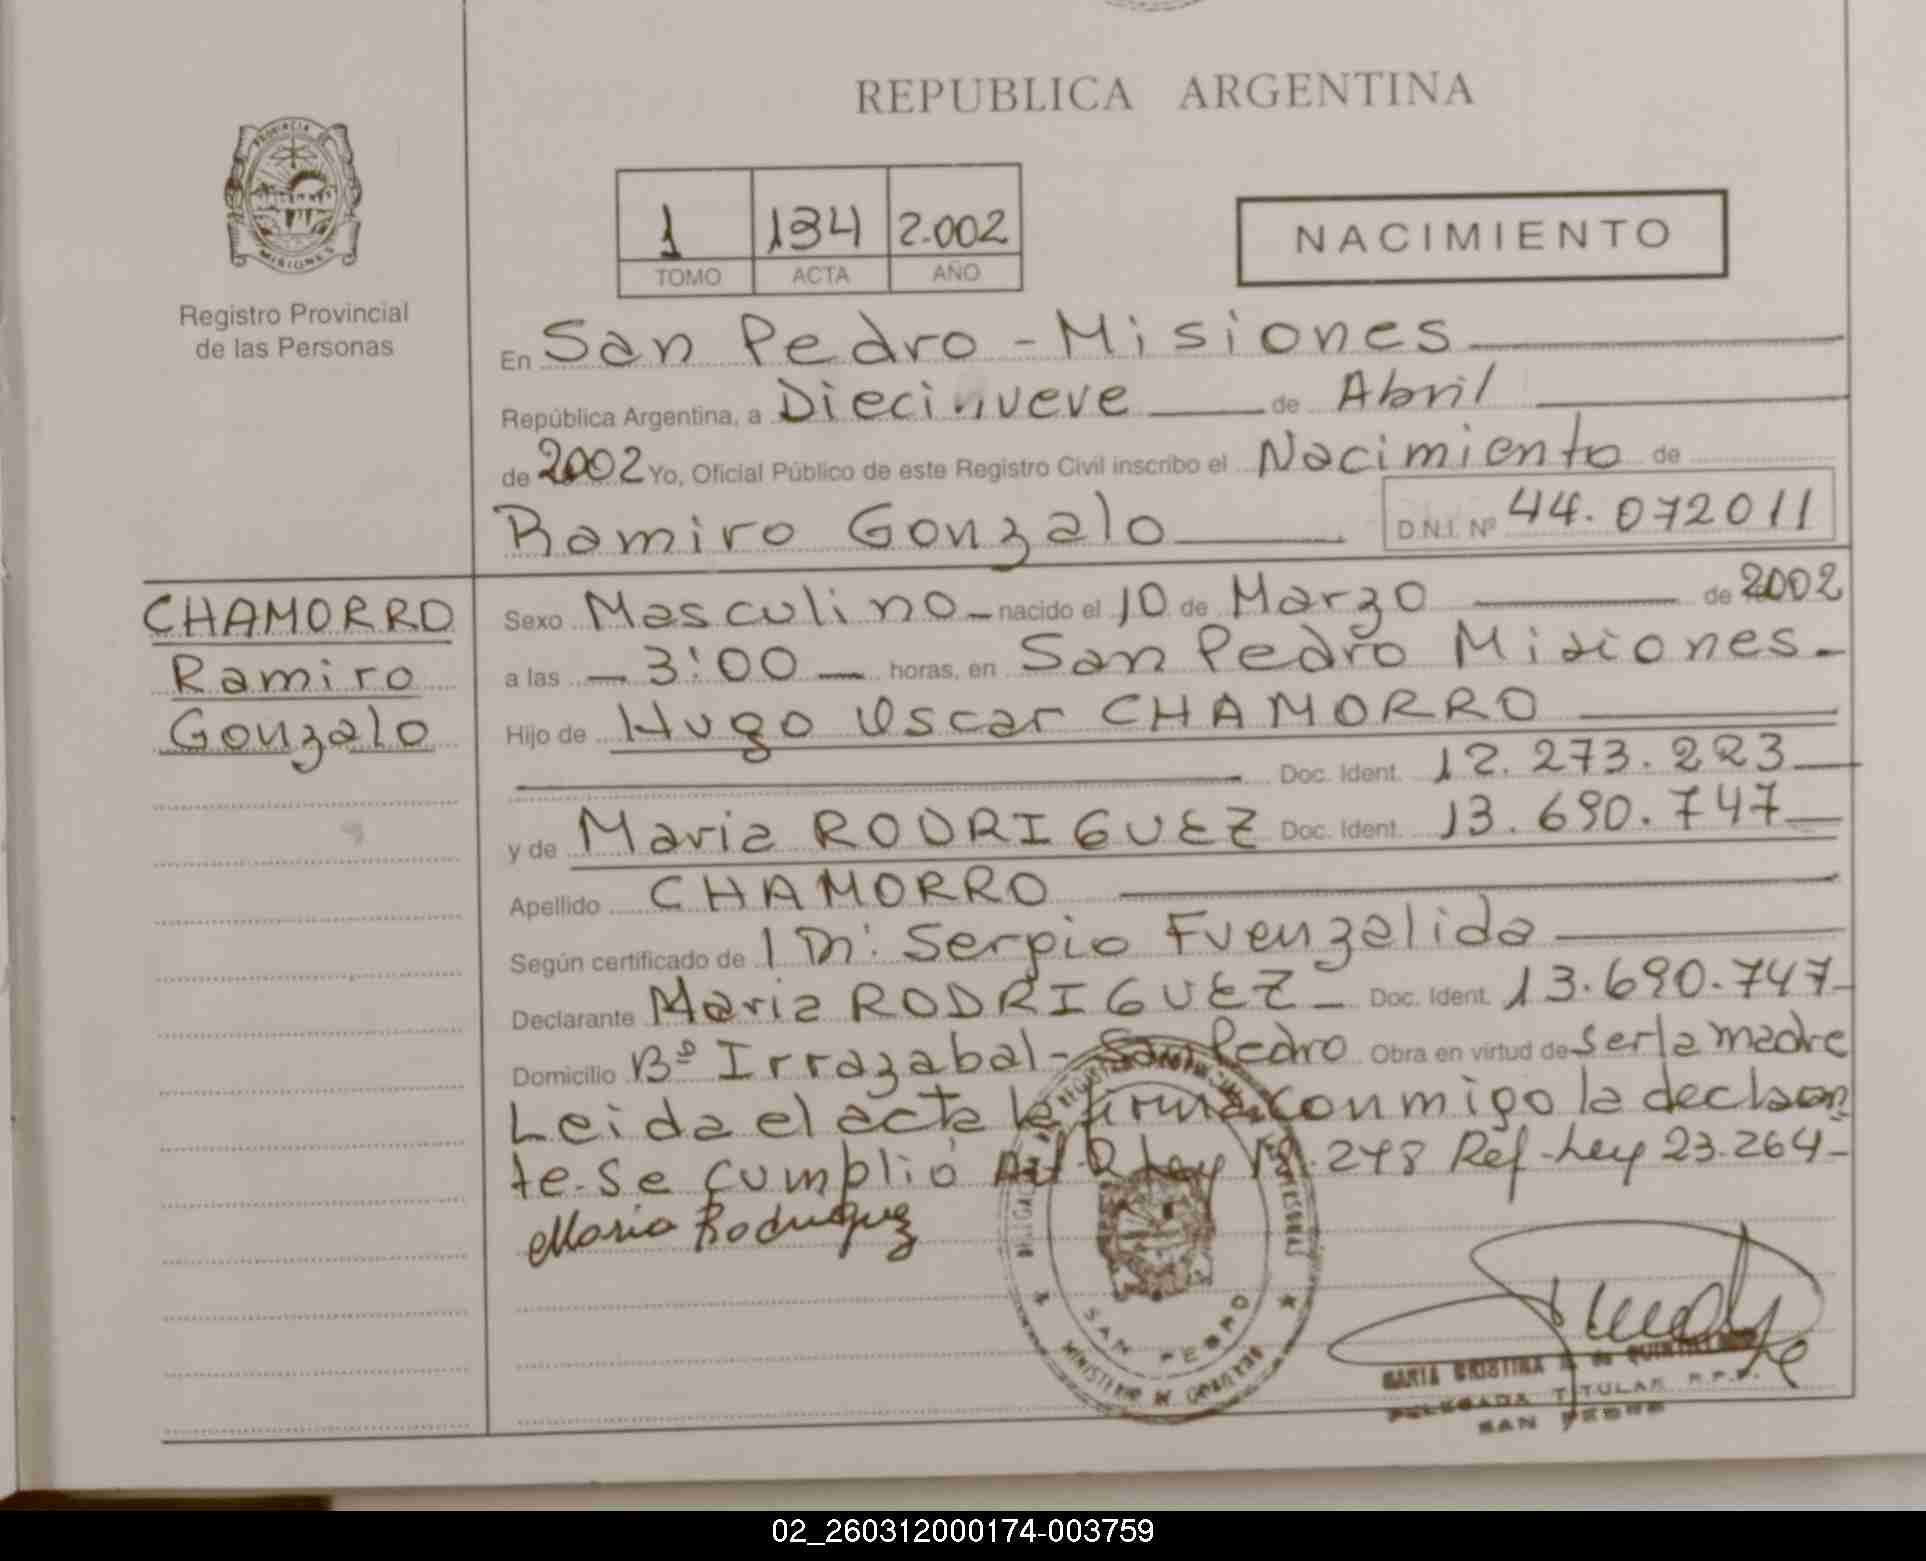 REPUBLICA ARGENTINA
PROVINCIA DE
MISIONES
Registro Provincial
de las Personas
1 134 2.002
TOMO ACTA AÑO
NACIMIENTO
En San Pedro - Misiones
República Argentina, a Diecinueve de Abril
de 2002 Yo, Oficial Público de este Registro Civil inscribo el Nacimiento de
Ramiro Gonzalo D.N.I. Nº 44.072011
CHAMORRO
Ramiro
Gonzalo
Sexo Masculino - nacido el 10 de Marzo de 2002
a las - 3:00 - horas, en San Pedro Misiones -
Hijo de Hugo Oscar CHAMORRO
Doc. Ident. 12.273.223
y de Maria RODRIGUEZ Doc. Ident. 13.690.747
Apellido CHAMORRO
Según certificado de Sergio Fuenzalida
Declarante Maria RODRIGUEZ - Doc. Ident. 13.690.747-
Domicilio Bº Irrazabal - San Pedro Obra en virtud de ser la madre
Leida el acta la firma conmigo la declaran
te. Se cumplió Art. 2 Ley 18.248 Ref - Ley 23.264-
Maria Rodriguez
SAN PEDRO
MINISTERIO DE GOBIERNO
MARIA CRISTINA de
DELEGADA TITULAR R.P.P.
SAN PEDRO
02_260312000174-003759